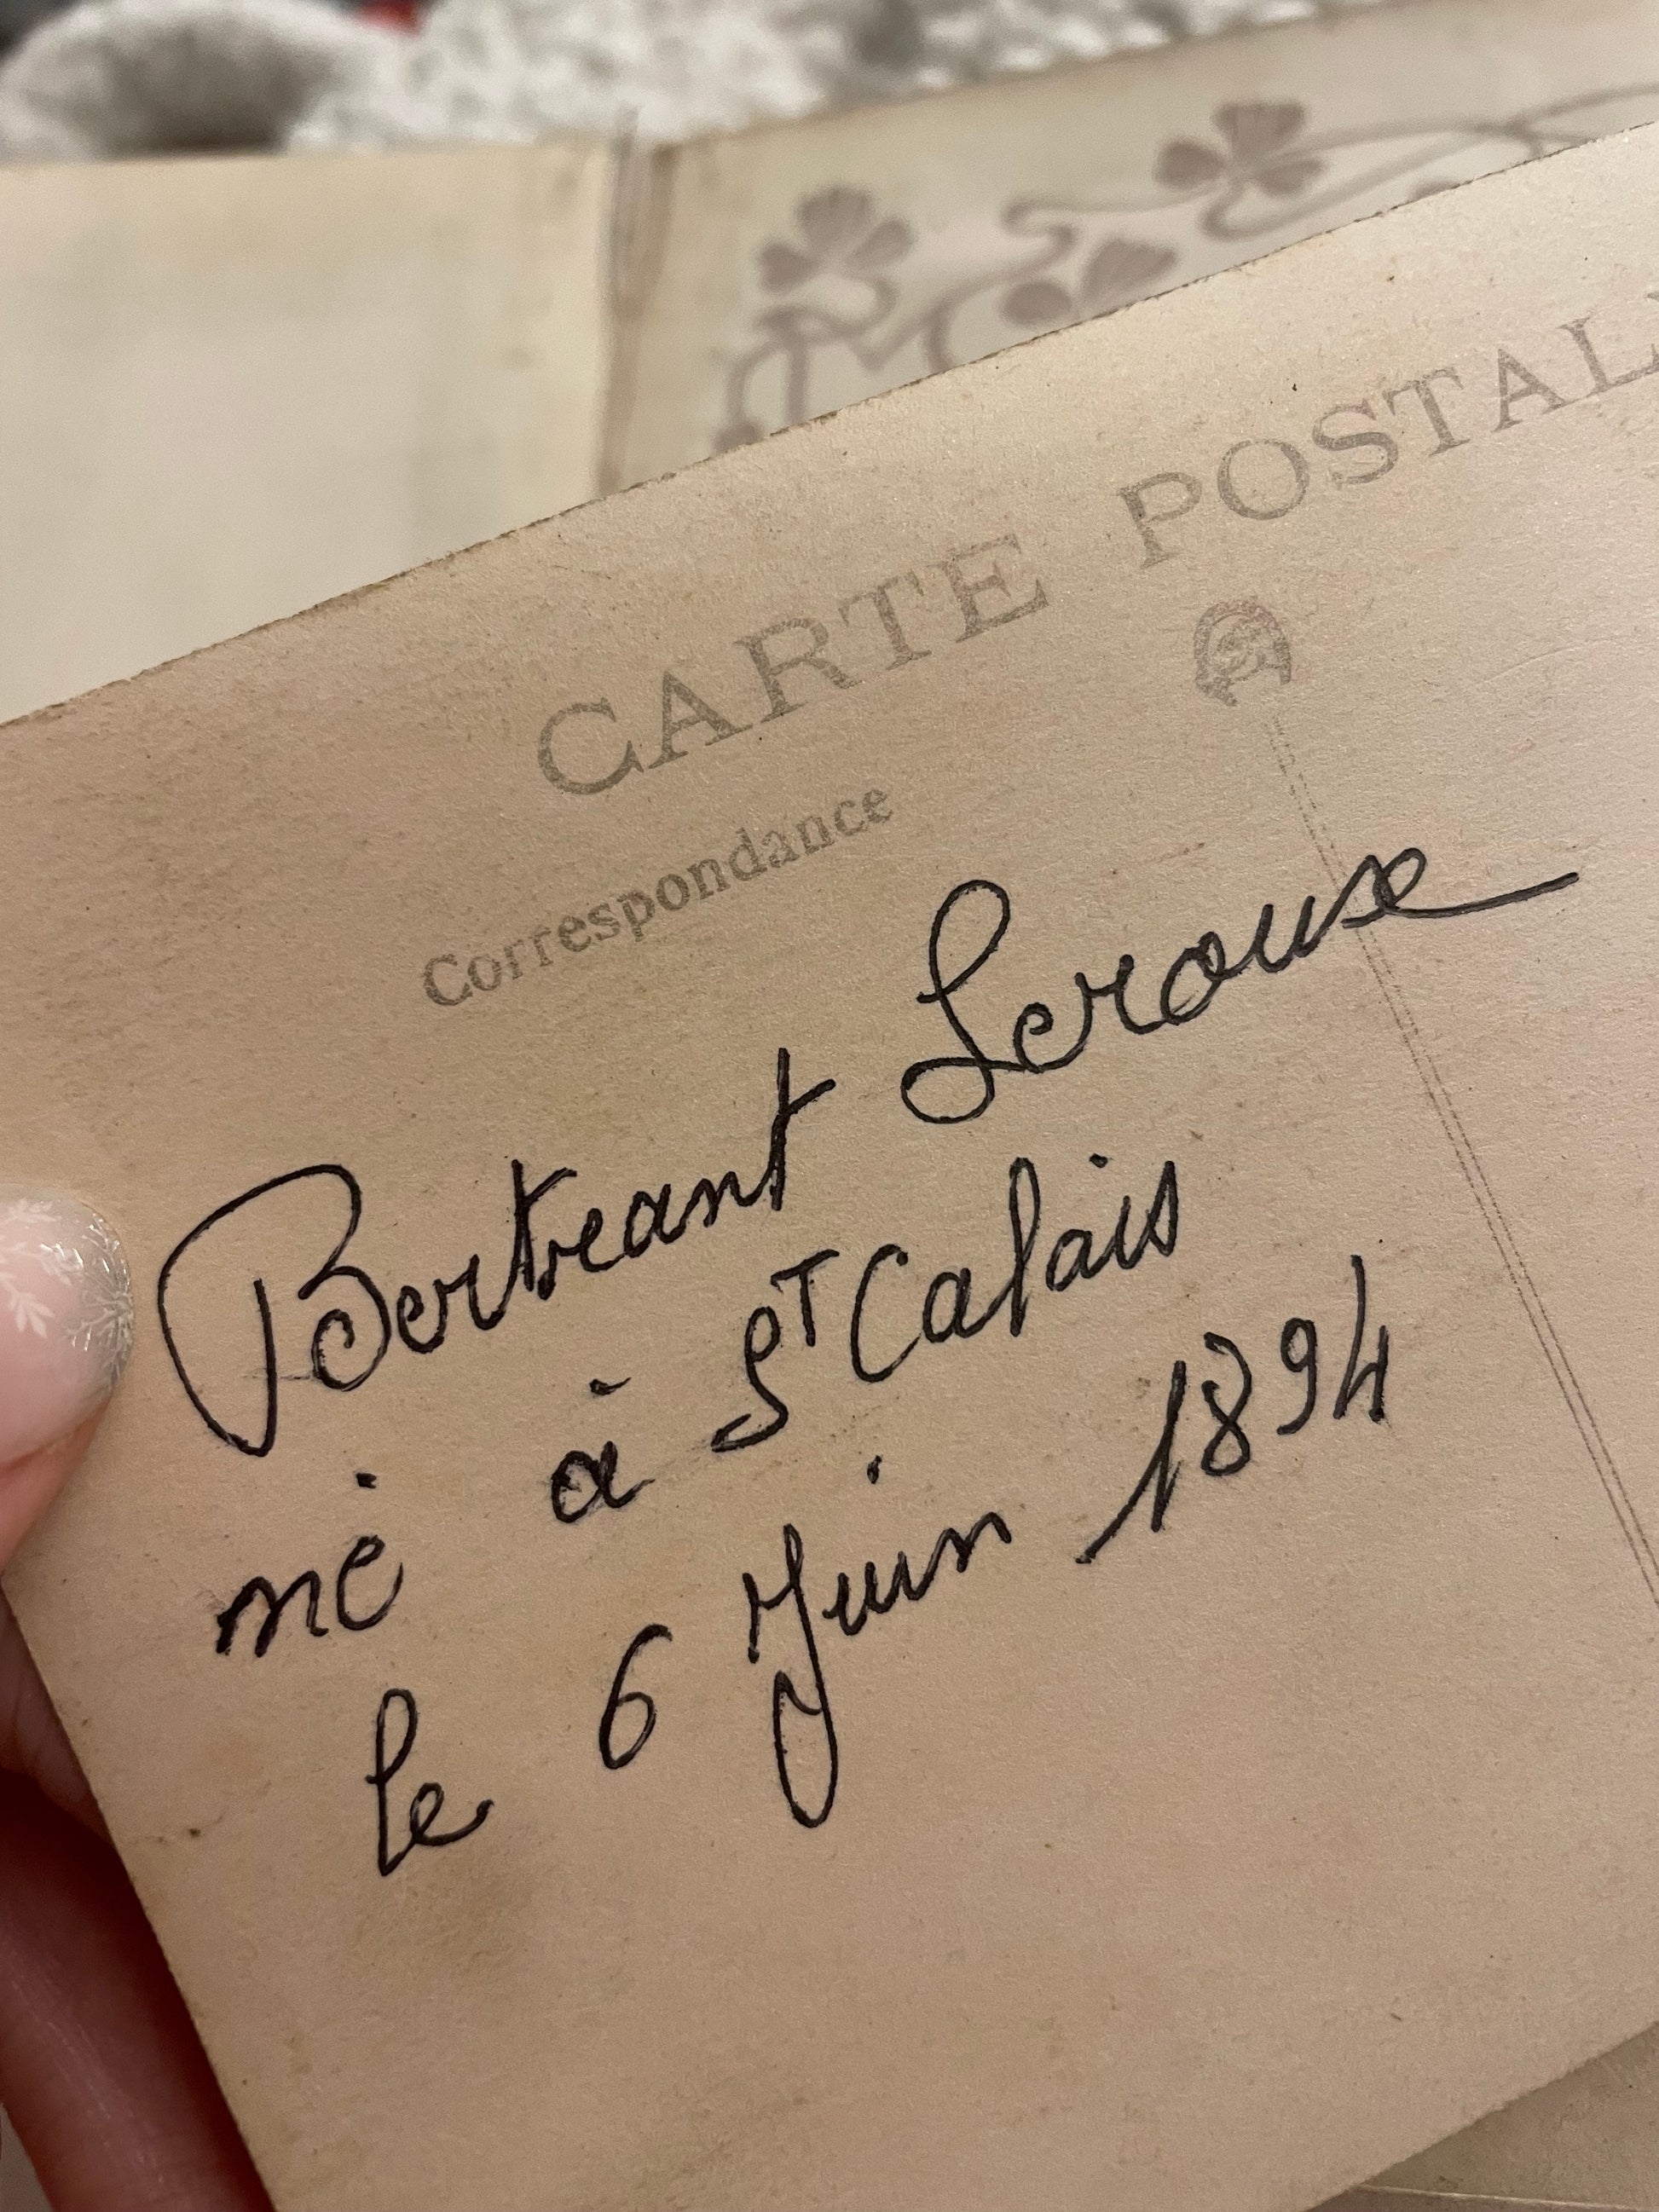 CARTE POSTAL
Correspondance
Bertreant Leroux
né à S^T Calais
le 6 Juin 1894